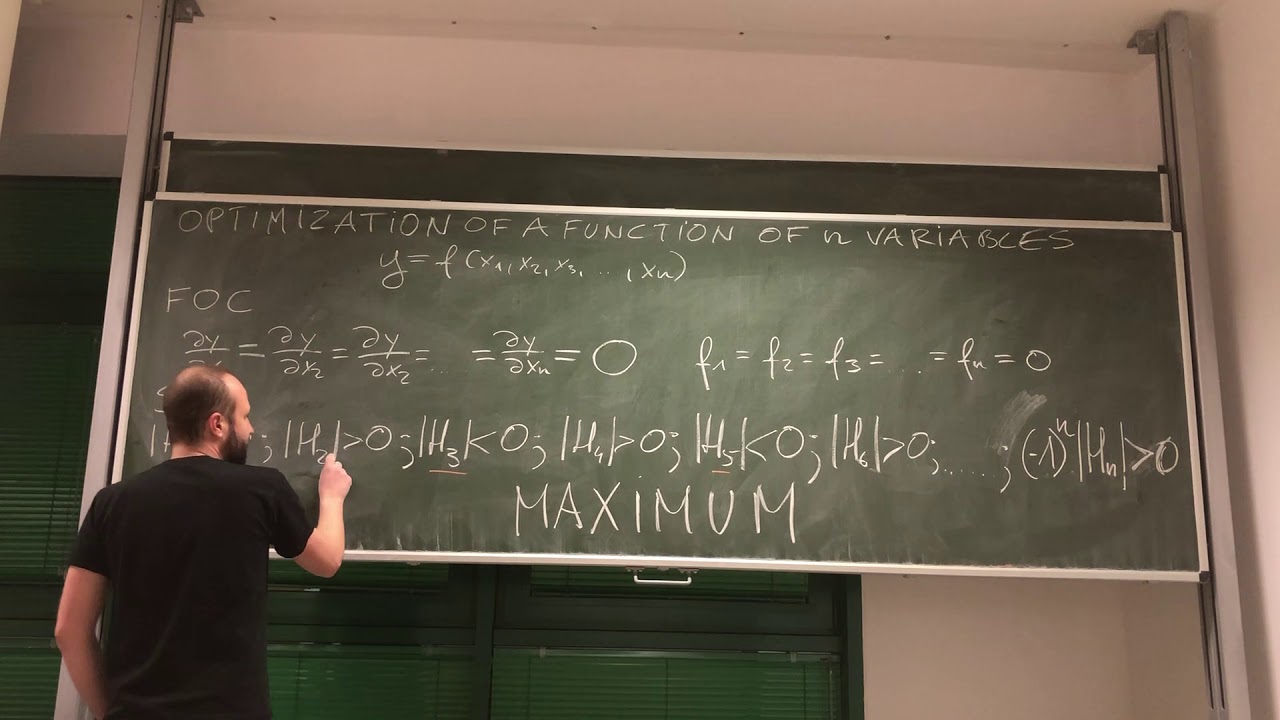 OPTIMIZATION OF A FUNCTION OF n VARIABLES
y = f(x₁, x₂, x₃, ..., xₙ)
FOC
∂y = ∂y/∂x₂ = ∂y/∂x₂ = ... = ∂y/∂xₙ = 0 f₁ = f₂ = f₃ = ... = fₙ = 0
; |H₂|>0; |H₃|<0; |H₄|>0; |H₅|<0; |H₆|>0; ......; (-1)ⁿ|Hₙ|>0
MAXIMUM